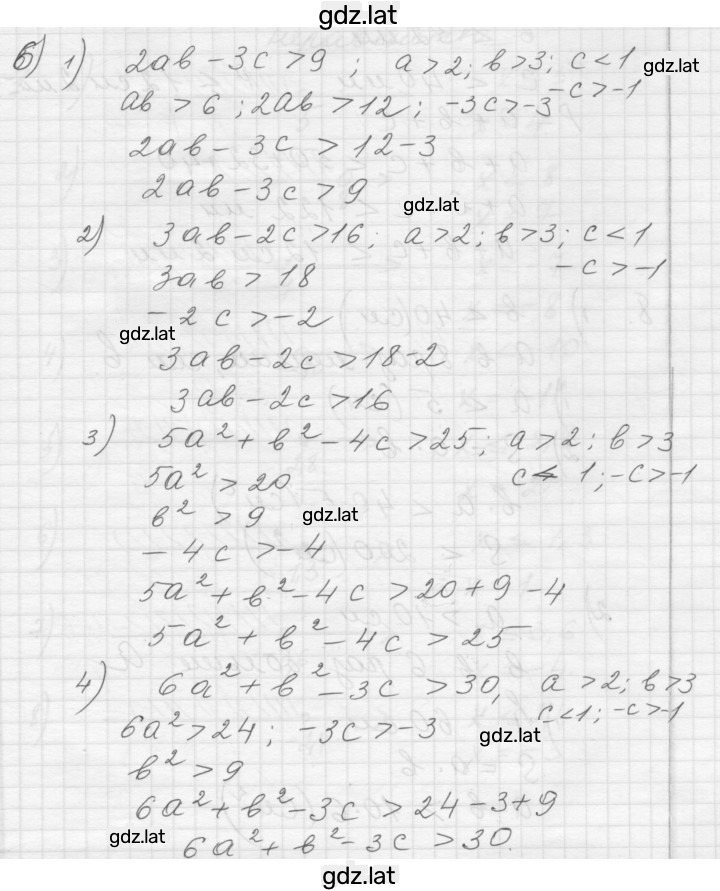 gdz.lat
б) 1) 2ab - 3c > 9 ; a > 2 ; b > 3 ; c < 1
gdz.lat
- c > -1
ab > 6 ; 2ab > 12 ; -3c > -3
2ab - 3c > 12 - 3
2ab - 3c > 9
gdz.lat
2) 3ab - 2c > 16 ; a > 2 ; b > 3 ; c < 1
- c > -1
3ab > 18
- 2c > -2
gdz.lat
3ab - 2c > 18 - 2
3ab - 2c > 16
3) 5a² + b² - 4c > 25 ; a > 2 ; b > 3
c < 1 ; -c > -1
5a² > 20
b² > 9
gdz.lat
- 4c > -4
5a² + b² - 4c > 20 + 9 - 4
5a² + b² - 4c > 25
4) 6a² + b² - 3c > 30, a > 2 ; b > 3
c < 1 ; -c > -1
6a² > 24 ; -3c > -3
gdz.lat
b² > 9
6a² + b² - 3c > 24 - 3 + 9
gdz.lat
6a² + b² - 3c > 30.
gdz.lat